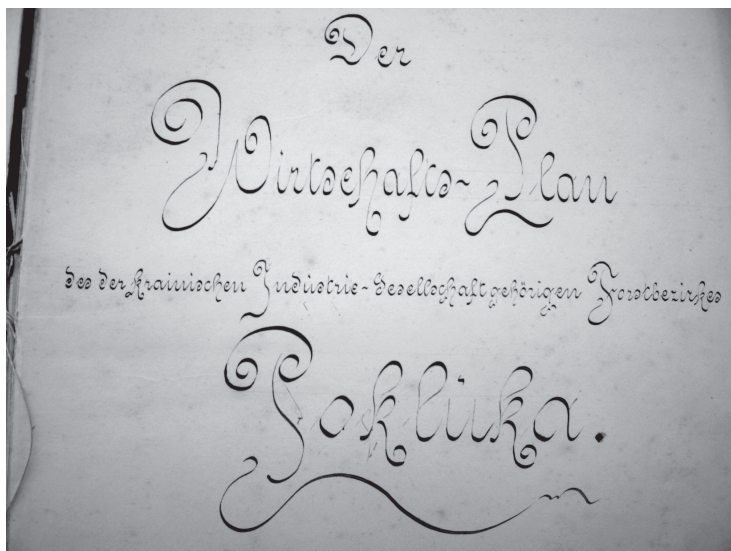 Der
Wirtschafts-Plan
des der krainischen Industrie-Gesellschaft gehörigen Forstbezirkes
Pokluka.